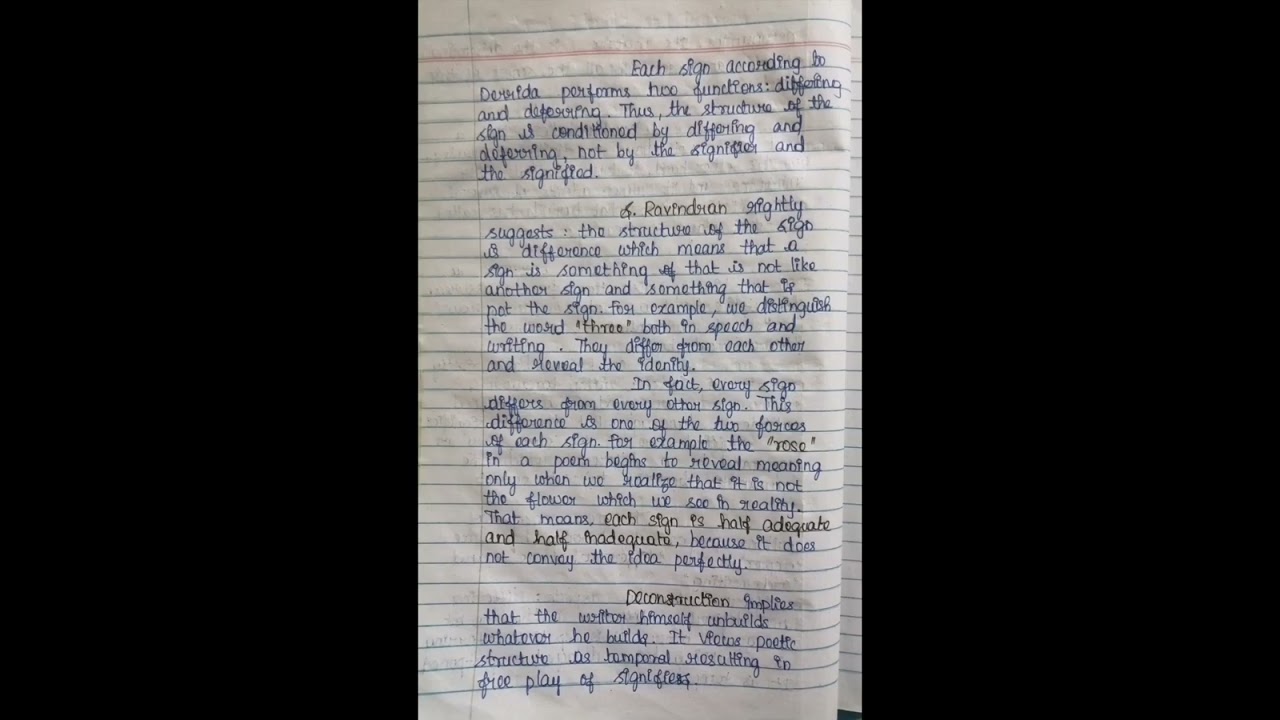 Each sign according to
Derrida performs two functions: differing
and deferring. Thus, the structure of the
sign is conditioned by differing and
deferring, not by the signifier and
the signified.
S. Ravindran rightly
suggests: the structure of the sign
is difference which means that a
sign is something that is not like
another sign and something that is
not the sign. For example, we distinguish
the word "three" both in speech and
writing. They differ from each other
and reveal the idenity.
In fact, every sign
differs from every other sign. This
difference is one of the two forces
of each sign. For example the "rose"
in a poem begins to reveal meaning
only when we realize that it is not
the flower which we see in reality.
That means, each sign is half adequate
and half inadequate, because it does
not convey the idea perfectly.
Deconstruction implies
that the writer himself unbuilds
whatever he builds. It views poetic
structure as temporal resulting in
free play of signifiers.